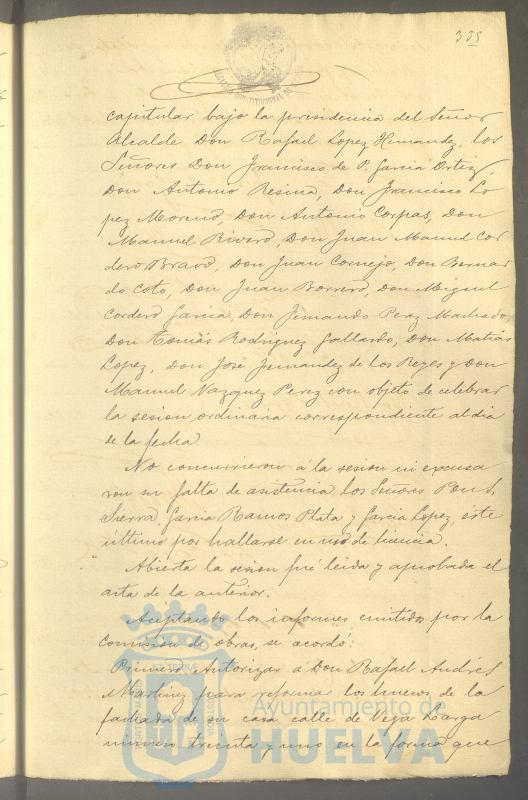 335
capitular bajo la presidencia del Señor
Alcalde Don Rafael Lopez Hernandez, los
Señores Don Francisco de P. Garcia Ortiz,
Don Antonio Resina, Don Francisco Lo
pez Moreno, Don Antonio Corpas, Don
Manuel Rivero, Don Juan Manuel Cor
dero Bravo, Don Juan Cornejo, Don Bernar
do Coto, Don Juan Borrero, Don Miguel
Cordero Garcia, Don Fernando Perez Machado,
Don Tomás Rodriguez Gallardo, Don Matias
Lopez, Don José Fernandez de los Reyes y Don
Manuel Vazquez Perez con objeto de celebrar
la sesion ordinaria correspondiente al dia
de la fecha
No concurrieron á la sesion ni excusa
ron su falta de asistencia los Señores Pons,
Sierra, Garcia Ramos Plata y Garcia Lopez, este
último por hallarse en uso de licencia.
Abierta la sesion fué leida y aprobada el
acta de la anterior.
Aceptando los informes emitidos por la
Comision de obras, se acordó:
Primero. Autorizar á Don Rafael Andrés
Martinez para reformar los huecos de la
fachada de su casa calle de Vega Larga
número treinta y uno en la forma que
Ayuntamiento de
HUELVA